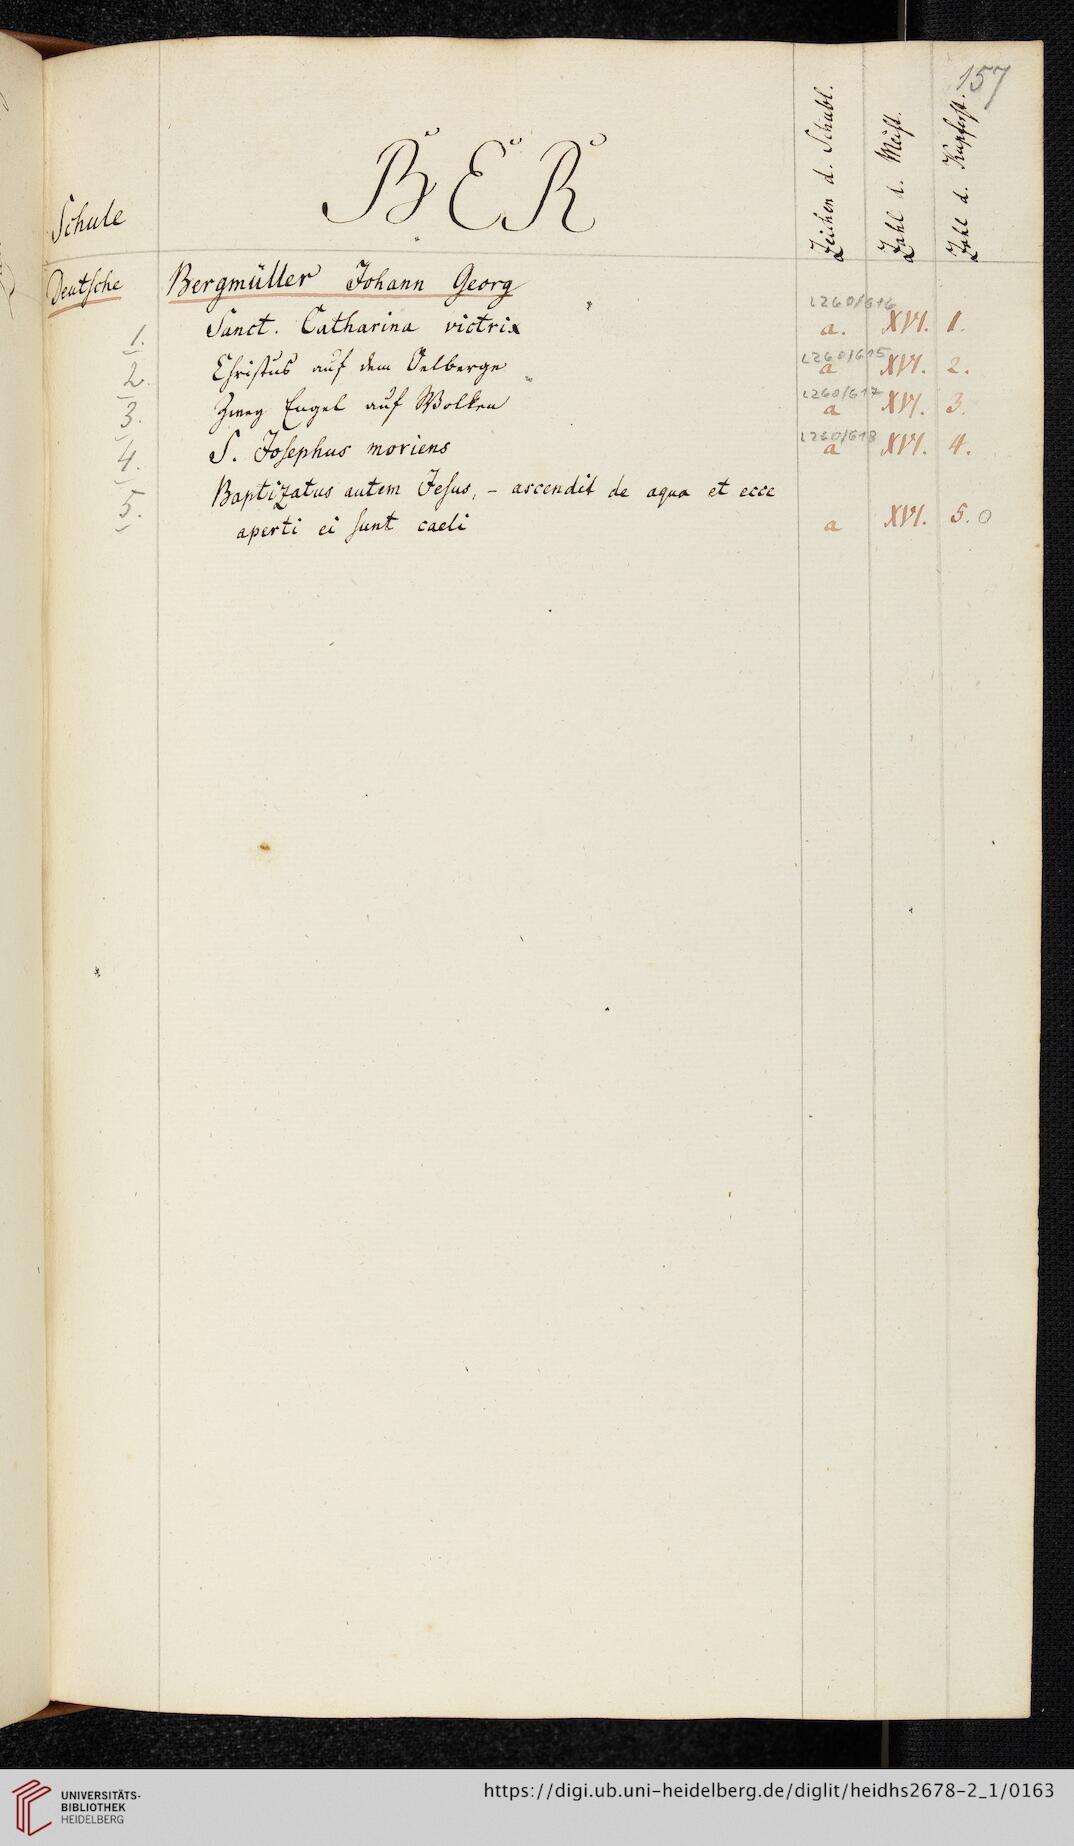 157
Schule
BER
Zeichen d. Schubl.
Zahl d. Meist.
Zahl d. Kupferst.
Deutsche Bergmüller Johann Georg
L260/616
1. Sanct. Catharina victrix a. XVI. 1.
L260/615
2. Christus auf dem Oelberge a XVI. 2.
L260/617
3. Zwey Engel auf Wolken a XVI. 3.
L260/618
4. S. Josephus moriens a XVI. 4.
5. Baptizatus autem Jesus, - ascendit de aqua et ecce
aperti ei sunt caeli a XVI. 5. o
UNIVERSITÄTS-
BIBLIOTHEK
HEIDELBERG
https://digi.ub.uni-heidelberg.de/diglit/heidhs2678-2_1/0163